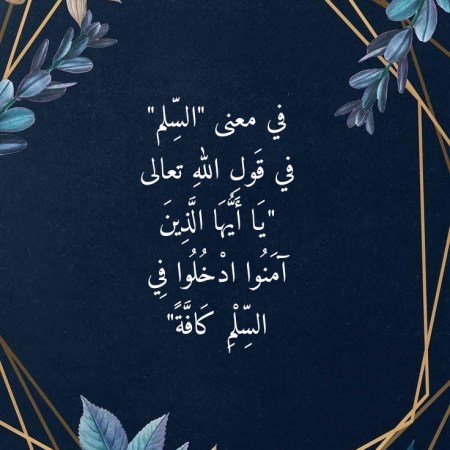 في معنى "السِّلم"
في قَولِ اللهِ تعالى
"يَا أَيُّهَا الَّذِينَ
آمَنُوا ادْخُلُوا فِي
السِّلْمِ كَافَّةً"